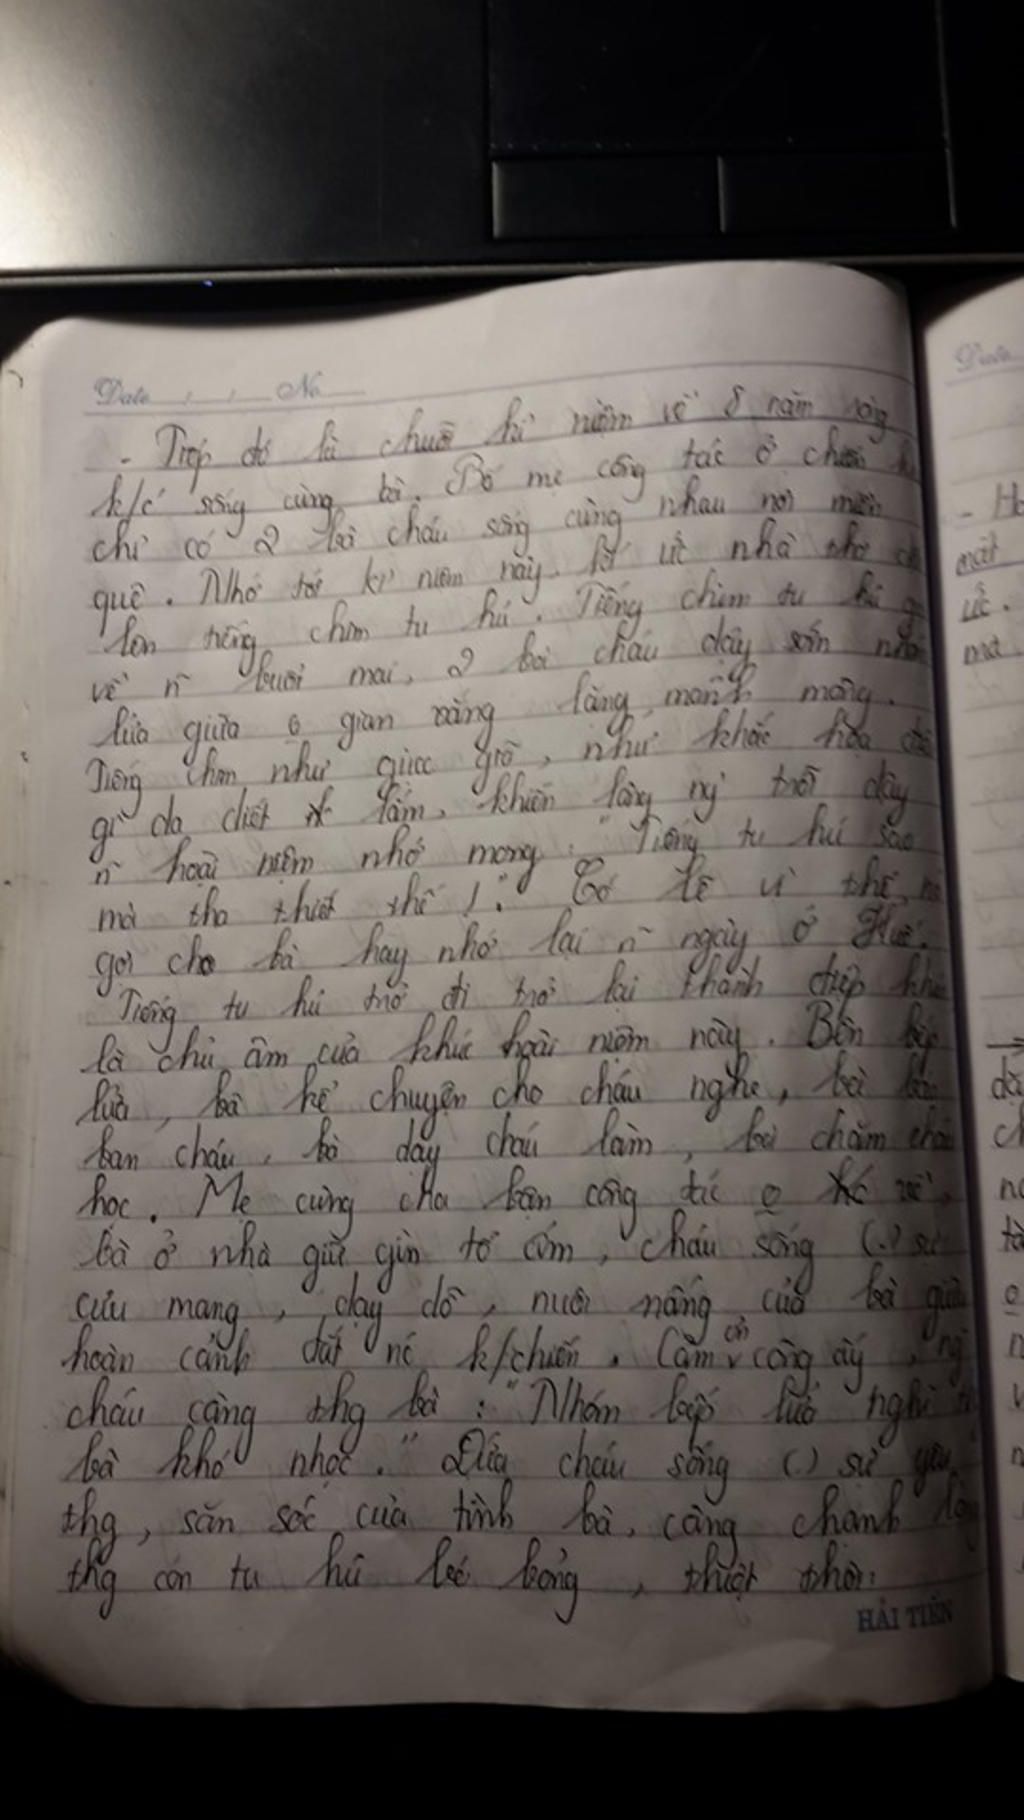 Date / / No
- Tiếp đó là chuỗi kỉ niệm về 8 năm ròng
k/c sống cùng bà. Bố mẹ công tác ở chiến
chỉ có 2 bà cháu sống cùng nhau nơi miền
quê. Nhớ tới kỉ niệm này. kí ức nhà thơ
lên tiếng chim tu hú. Tiếng chim tu hú
về ~n buổi mai, 2 bà cháu dậy sớm nhóm
lửa giữa o gian vắng lặng, mênh mông.
Tiếng chim như giục giã, như khắc khoải
gì da diết lắm, khiến lòng ng trỗi dậy
~n hoài niệm nhớ mong: "Tiếng tu hú sao
mà tha thiết thế !". Có lẽ vì thế,
gợi cho bà hay nhớ lại ~n ngày ở Huế.
Tiếng tu hú trở đi trở lại thành điệp khúc
là chủ âm của khúc hoài niệm này. Bên bếp
lửa, bà kể chuyện cho cháu nghe, bà bảo
ban cháu, bà dạy cháu làm, bà chăm cháu
học. Mẹ cùng cha bận công tác o về,
bà ở nhà giữ gìn tổ ấm, cháu sống (.) sự
cưu mang, dạy dỗ, nuôi nấng của bà giữa
hoàn cảnh đất nc k/chiến. Cảm ơn công ấy, ng
cháu càng thg bà: "Nhóm bếp lửa nghĩ
bà khó nhọc." Đứa cháu sống (.) sự yêu
thg, săn sóc của tình bà, càng chạnh lòng
thg con tu hú bơ vơ, thiệt thòi:
HẢI TIẾN
Date
- H
mắt
ức.